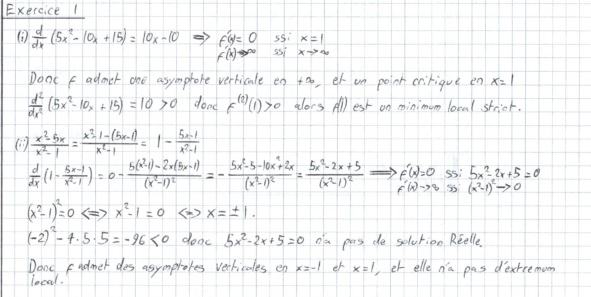 Exercice 1
(i) d/dx (5x²-10x+15) = 10x-10 ⟹ f'(x)=0 ssi x=1
f'(x)→∞ ssi x→∞
Donc f admet une asymptote verticale en +∞, et un point critique en x=1
d²/dx² (5x²-10x+15) = 10 >0 donc f⁽²⁾(1)>0 alors f(1) est un minimum local strict.
(ii) (x²-5x)/(x²-1) = (x²-1-(5x-1))/(x²-1) = 1 - (5x-1)/(x²-1)
d/dx (1 - (5x-1)/(x²-1)) = 0 - (5(x²-1)-2x(5x-1))/(x²-1)² = - (5x²-5-10x²+2x)/(x²-1)² = (5x²-2x+5)/(x²-1)² ⟹ f'(x)=0 ssi 5x²-2x+5=0
f'(x)→∞ ssi (x²-1)²→0
(x²-1)²=0 ⟺ x²-1=0 ⟺ x=±1.
(-2)²-4·5·5=-96<0 donc 5x²-2x+5=0 n'a pas de solution Réelle.
Donc f admet des asymptotes verticales en x=-1 et x=1, et elle n'a pas d'extremum
local.